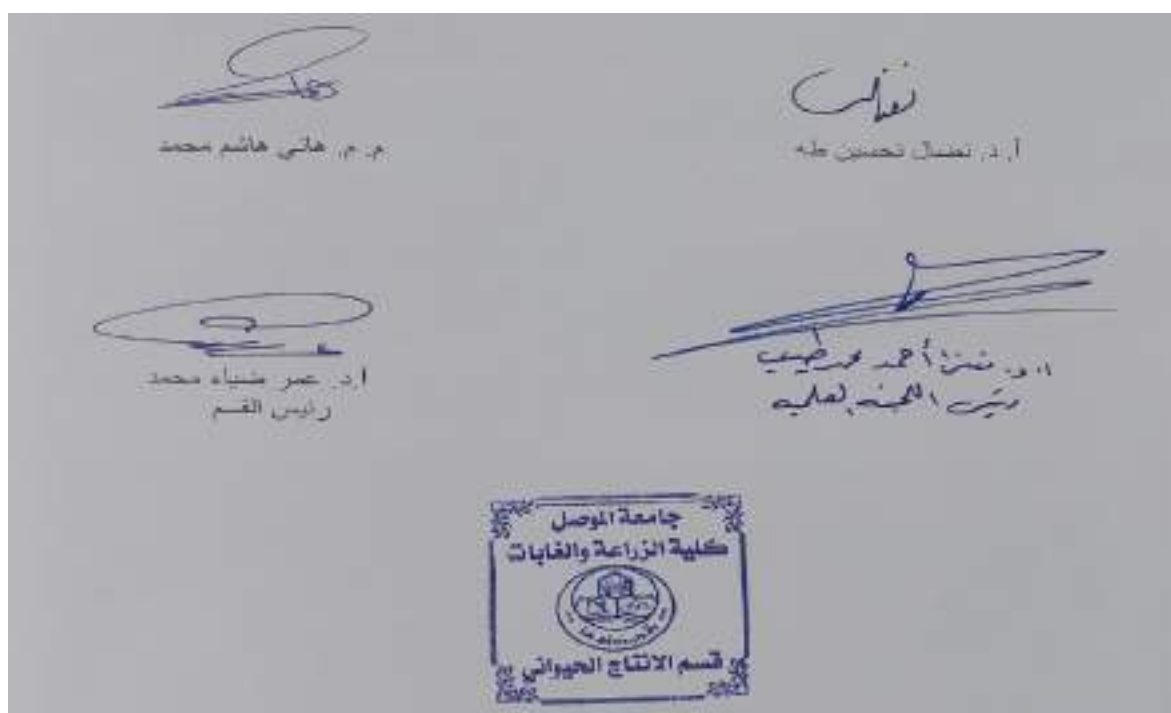 أ. د. نضال تحسين طه
م. م. هاني هاشم محمد
أحمد محمد طيب
رئيس اللجنة العلمية
ا.د. عمر ضياء محمد
رئيس القسم
جامعة الموصل
كلية الزراعة والغابات
قسم الانتاج الحيواني